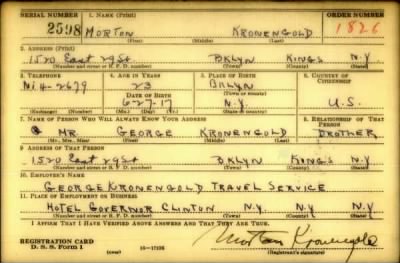 SERIAL NUMBER 1. NAME (Print) ORDER NUMBER
2598 MORTON KRONENGOLD 1826
(First) (Middle) (Last)
2. ADDRESS (Print)
1520 East 29St BKLYN KINGS N.Y
(Number and street or R. F. D. number) (Town) (County) (State)
3. TELEPHONE 4. AGE IN YEARS 5. PLACE OF BIRTH 6. COUNTRY OF CITIZENSHIP
Ni 4-2679 23 BKLYN
DATE OF BIRTH (Town or county)
6-27-17 N.Y. U.S.
(Exchange) (Number) (Mo.) (Day) (Yr.) (State or country)
7. NAME OF PERSON WHO WILL ALWAYS KNOW YOUR ADDRESS 8. RELATIONSHIP OF THAT PERSON
MR. GEORGE KRONENGOLD BROTHER
(Mr., Mrs., Miss) (First) (Middle) (Last)
9. ADDRESS OF THAT PERSON
1520 East 29St BKLYN KINGS N.Y
(Number and street or R. F. D. number) (Town) (County) (State)
10. EMPLOYER'S NAME
GEORGE KRONENGOLD TRAVEL SERVICE
11. PLACE OF EMPLOYMENT OR BUSINESS
HOTEL GOVERNOR CLINTON N.Y. N.Y. N.Y.
(Number and street or R. F. D. number) (Town) (County) (State)
I AFFIRM THAT I HAVE VERIFIED ABOVE ANSWERS AND THAT THEY ARE TRUE.
REGISTRATION CARD
D. S. S. Form 1 (over) 16-17105 Morton Kronengold
(Registrant's signature)